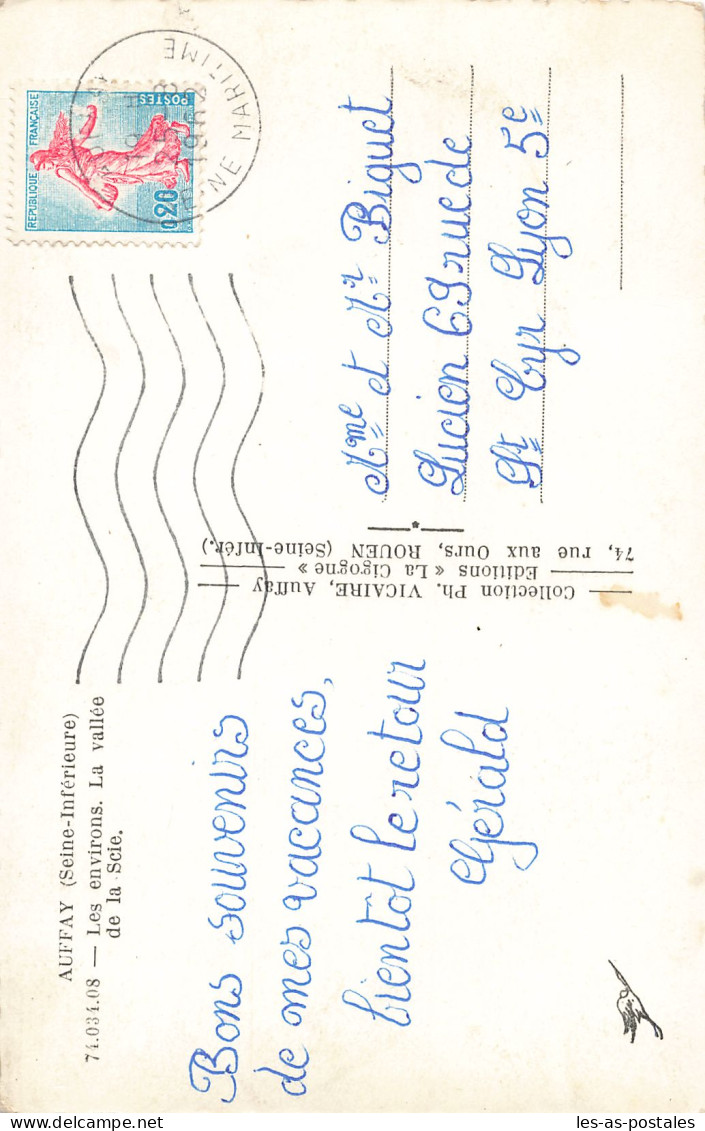 AUFFAY (Seine-Inférieure)
74.034.08 — Les environs. La vallée
de la Scie.
Bons souvenirs
de mes vacances,
bientôt le retour
Gérald
— Collection Ph. VICAIRE, Auffay —
— Editions « La Cigogne » —
74, rue aux Ours, ROUEN (Seine-Infér.)
REPUBLIQUE FRANÇAISE
POSTES
0,20
NE MARITIME
Mme et Mr Biguet
Lucien 69 rue de
St Cyr Lyon 5e
les-as-postales